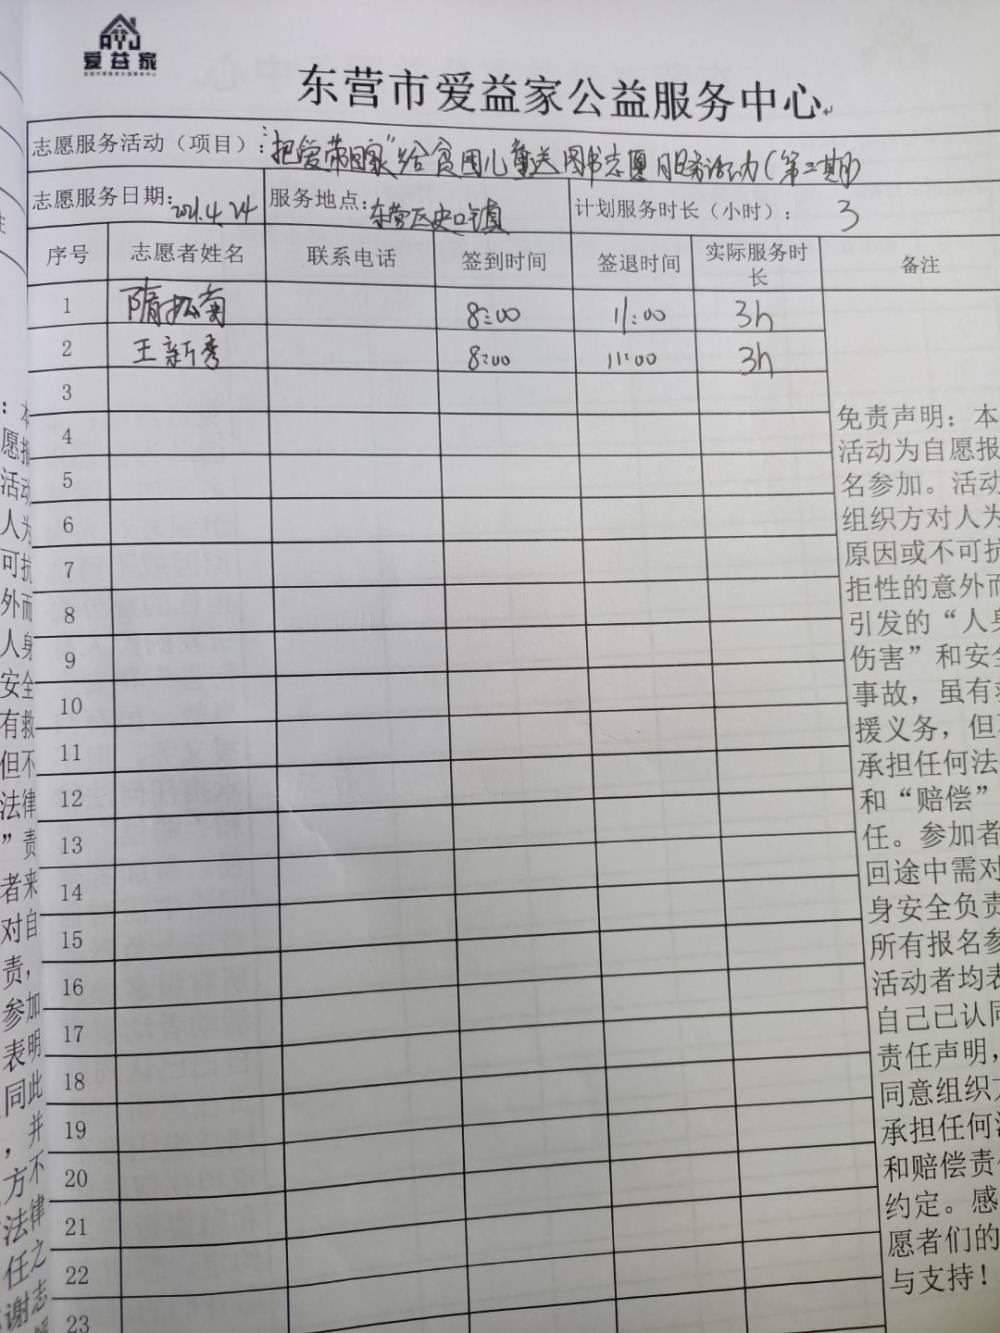 爱益家
东营市爱益家公益服务中心
志愿服务活动（项目）：“把爱带回家”给贫困儿童送图书志愿服务活动（第二期）
志愿服务日期：2021.4.24 服务地点：东营区史口镇 计划服务时长（小时）：3
序号 志愿者姓名 联系电话 签到时间 签退时间 实际服务时长 备注
1 隋振南 8:00 11:00 3h
2 王新秀 8:00 11:00 3h
3
4
5
6
7
8
9
10
11
12
13
14
15
16
17
18
19
20
21
22
23
免责声明：本
活动为自愿报
名参加。活动
组织方对人为
原因或不可抗
拒性的意外而
引发的“人身
伤害”和安全
事故，虽有救
援义务，但
承担任何法
和“赔偿”
任。参加者
回途中需对
身安全负责
所有报名参
活动者均表
自己已认同
责任声明，
同意组织方
承担任何法
和赔偿责任
约定。感
愿者们的
与支持！
：本
愿报
活动
人为
可抗
外而
人身
安全
有救
但不
法律
”责
者来
对自
责，
参加
表明
同此
，并
方不
法律
任之
谢志